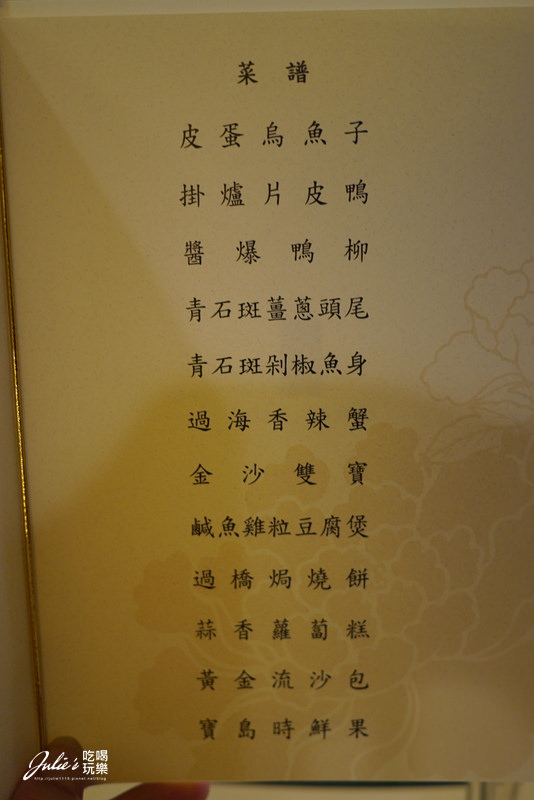 菜譜
皮蛋烏魚子
掛爐片皮鴨
醬爆鴨柳
青石斑薑蔥頭尾
青石斑剁椒魚身
過海香辣蟹
金沙雙寶
鹹魚雞粒豆腐煲
過橋焗燒餅
蒜香蘿蔔糕
黃金流沙包
寶島時鮮果
Julie's 吃喝玩樂
http://julie1115.pixnet.net/blog